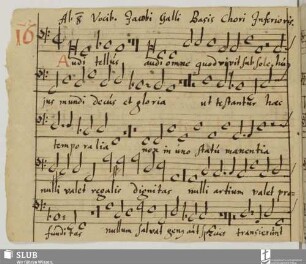 Al 8 Vocib. Jacobi Galli Basis Chori Inferioris.
16
Audi tellus audi omne quod vivit sub sole, hu
jus mundi decus et gloria ut testantur haec
temporalia non in uno statu manentia
nulli valet regalis dignitas nulli artium valet pro
funditas nullum salvat genus aut species transierunt
SLUB
Wir führen Wissen.